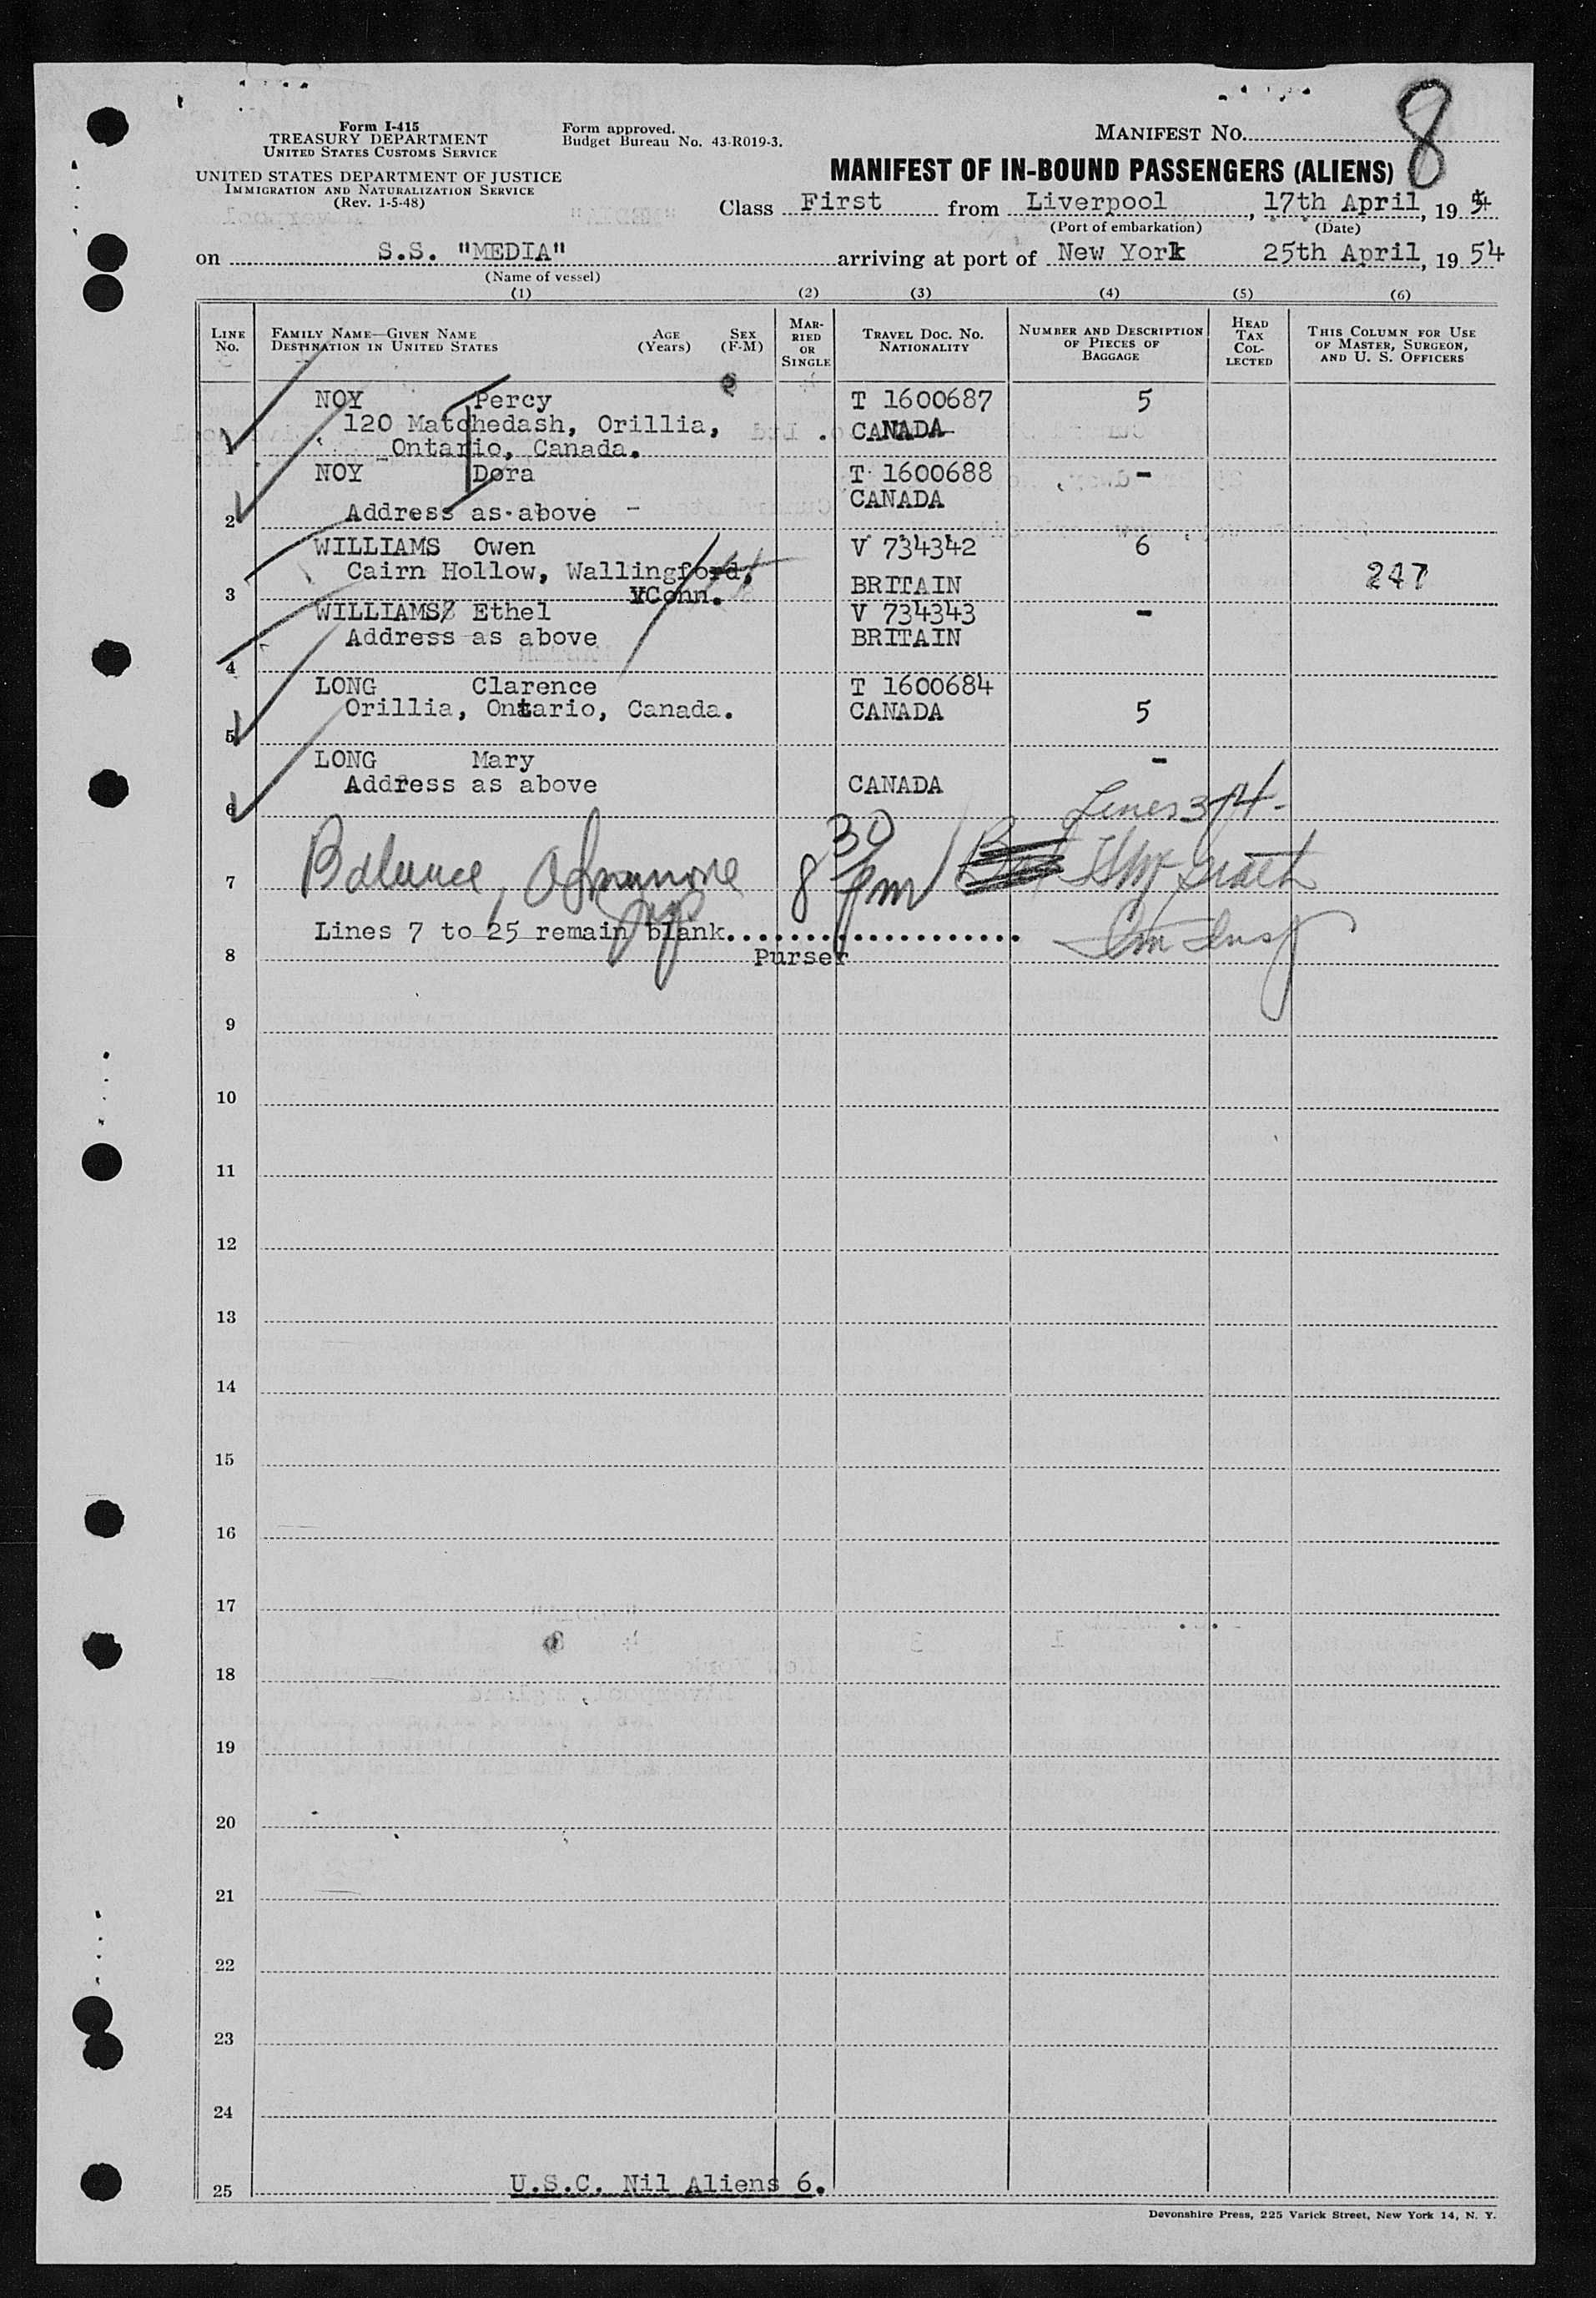 8
Form I-415
TREASURY DEPARTMENT
UNITED STATES CUSTOMS SERVICE
UNITED STATES DEPARTMENT OF JUSTICE
IMMIGRATION AND NATURALIZATION SERVICE
(Rev. 1-5-48)
Form approved.
Budget Bureau No. 43-R019-3.
MANIFEST No.
MANIFEST OF IN-BOUND PASSENGERS (ALIENS)
Class First from Liverpool, 17th April, 1954
(Port of embarkation) (Date)
on S.S. "MEDIA" arriving at port of New York 25th April, 1954
(Name of vessel)
(1) (2) (3) (4) (5) (6)
LINE No.
FAMILY NAME—GIVEN NAME AGE SEX
DESTINATION IN UNITED STATES (Years) (F-M)
MARRIED OR SINGLE
TRAVEL DOC. NO. NATIONALITY
NUMBER AND DESCRIPTION OF PIECES OF BAGGAGE
HEAD TAX COLLECTED
THIS COLUMN FOR USE OF MASTER, SURGEON, AND U. S. OFFICERS
NOY Percy T 1600687 5
120 Matchedash, Orillia, CANADA
1 Ontario, Canada.
NOY Dora T 1600688 -
CANADA
2 Address as above -
WILLIAMS Owen V 734342 6
Cairn Hollow, Wallingford, BRITAIN 247
3 Conn.
WILLIAMS Ethel V 734343 -
Address as above BRITAIN
4
LONG Clarence T 1600684
Orillia, Ontario, Canada. CANADA 5
5
LONG Mary -
Address as above CANADA
6
Lines 3 & 4 -
7 Balance, 8 30 pm
Lines 7 to 25 remain blank....................
Im Insp
8 Purser
9
10
11
12
13
14
15
16
17
18
19
20
21
22
23
24
25 U.S.C. Nil Aliens 6.
Devonshire Press, 225 Varick Street, New York 14, N. Y.